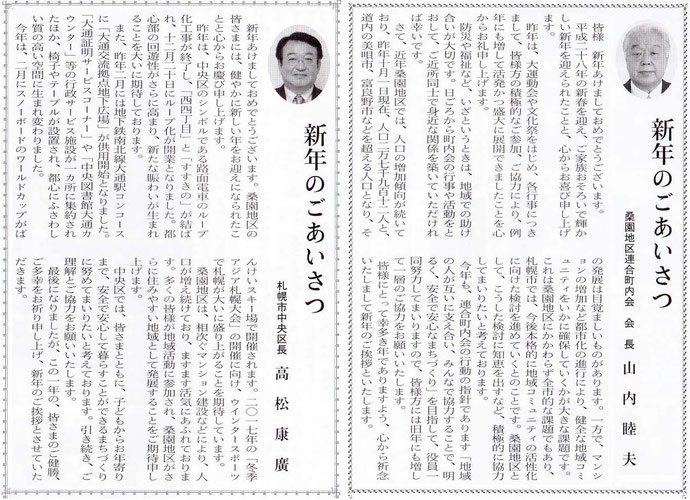 新年のごあいさつ
桑園地区連合町内会 会長 山内睦夫
皆様、新年あけましておめでとうございます。
平成二十八年の新春を迎え、ご家族おそろいで輝か
しい新年を迎えられたことと、心からお喜び申し上げ
ます。
昨年は、大運動会や文化祭をはじめ、各行事につき
まして、皆様方の積極的なご参加、ご協力により、例
年にも増して活発かつ盛大に展開できましたことを心
からお礼申し上げます。
防災や福祉など、いざというときは、地域での助け
合いが大切です。日ごろから町内会の行事や活動をと
おして、ご近所同士で身近な関係を築いていただけれ
ば幸いです。
さて、近年桑園地区では、人口の増加傾向が続いて
おり、昨年十月一日現在、人口二万七千九百十一人と、
道内の美唄市、富良野市などを超える人口となり、そ
の発展は目覚ましいものがあります。一方で、マンシ
ョンの増加など都市化の進行により、健全な地域コミ
ュニティをいかに確保していくかが大きな課題です。
これは桑園地区にかかわらず全市的な課題でもあり、
札幌市では、今後本格的に地域コミュニティの活性化
に向けた検討を進めていくとのことです。桑園地区と
して、こうした検討に知恵を出すなど、積極的に協力
してまいりたいと考えております。
今年も、連合町内会の行動の指針であります「地域
の人が互いに支え合い、みんなで協力することで、明
るく、安全で安心なまちづくり」を目指して、役員一
同努力してまいりますので、皆様方には旧年にも増し
て一層のご協力をお願いいたします。
皆様にとって幸多き年でありますよう、心から祈念
いたしまして新年のご挨拶といたします。
新年のごあいさつ
札幌市中央区長 高松康廣
新年あけましておめでとうございます。桑園地区の
皆さまには、健やかに新しい年をお迎えになられたこ
とと心からお慶び申し上げます。
昨年は、中央区のシンボルである路面電車のループ
化工事が終了し、「西四丁目」と「すすきの」が結ば
れ、十二月二十日にループ化が開業となりました。都
心部の回遊性がさらに高まり、新たな賑わいが生まれ
ることを大いに期待しております。
また、昨年二月には地下鉄南北線大通駅コンコース
に「大通交流拠点地下広場」が供用開始となりました。
「大通証明サービスコーナー」や「中央図書館大通カ
ウンター」等の行政サービス施設が一カ所に集約され
たほか、椅子やテーブルが設置され、都心にふさわし
い質の高い空間に生まれ変わりました。
今年は、二月にスノーボードのワールドカップがば
んけいスキー場で開催されます。二〇一七年の「冬季
アジア札幌大会」の開催に向け、ウインタースポーツ
で札幌が大いに盛り上がることを期待しています。
桑園地区は、相次ぐマンション建設などにより、人
口が増え続けており、ますます活気にあふれておりま
す。多くの皆様が地域活動に参加され、桑園地区がさ
らに住みやすい地域として発展することをご期待申し
上げます。
中央区では、皆さまとともに、子どもからお年寄り
まで、安全で安心して暮らすことができるまちづくり
に努めてまいりたいと考えております。引き続き、ご
理解とご協力をお願いいたします。
最後になりましたが、この一年の、皆さまのご健勝、
ご多幸をお祈り申し上げ、新年のご挨拶とさせていた
だきます。